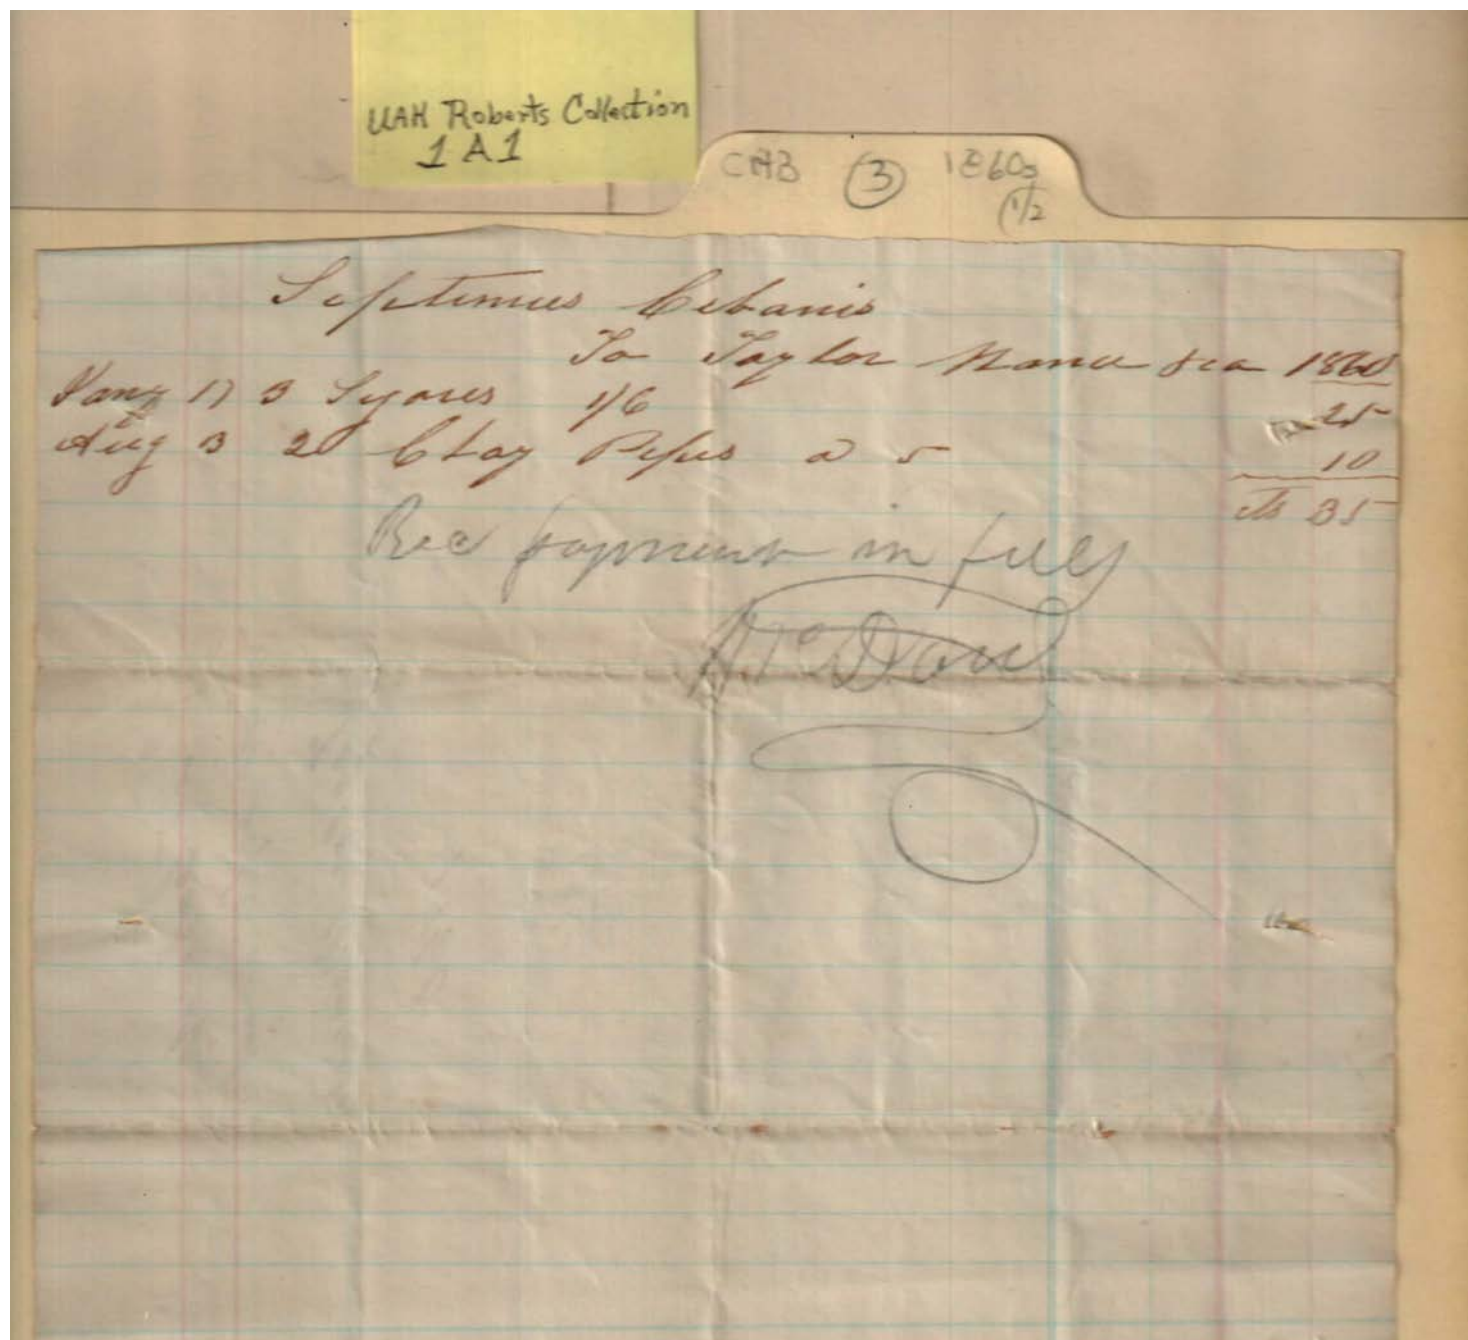 UAH Roberts Collection
1 A 1
CAB 3 1860s
1/2
Septimus Cabanis
To Taylor 1860
Jany 17 3 Sygars 1/6 25
Aug 3 2 Clay Pipes a 5 10
cts 35
Rec payment in full